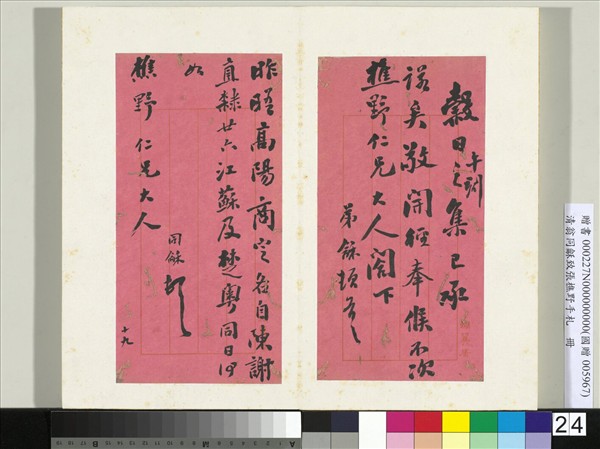 穀日之集已承
午刻
諾矣敬開徑奉候不次
樵野仁兄大人閣下
弟龢頓首
昨晤高陽商定各自陳謝
直隸廿六江蘇及楚粵同日何
如
樵野仁兄大人
同龢頓
十九
贈書 000227N000000000(國贈 005967)
清翁同龢致張樵野手札 冊
24